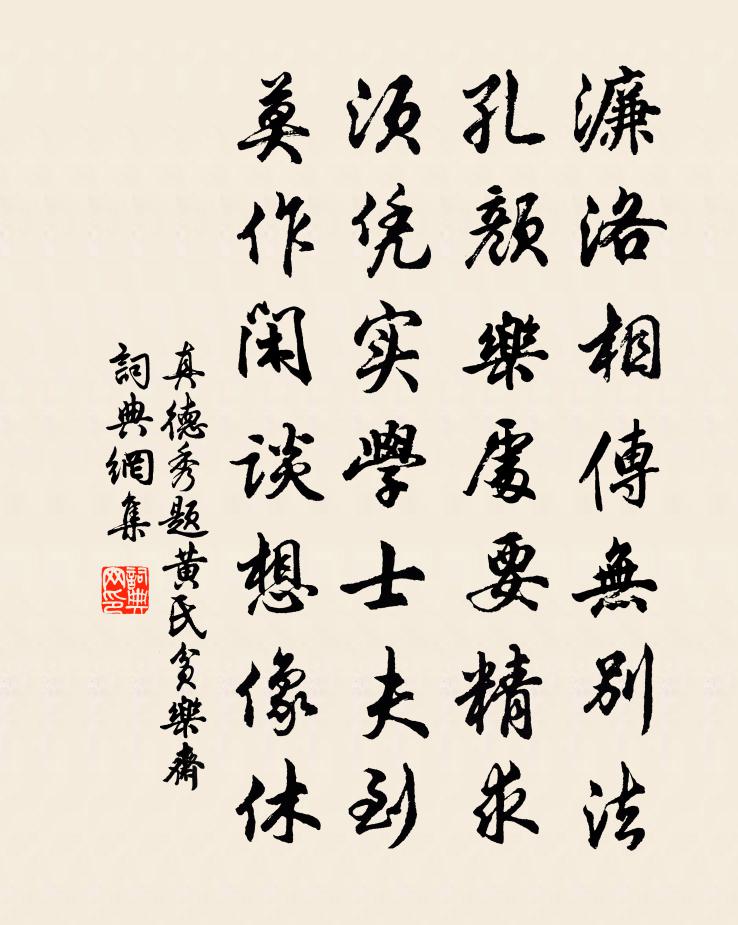 濂洛相傳無別法
孔顏樂處要精求
須凭实學士夫到
莫作閑談想像休
真德秀題黃氏貧樂齋
詞典網集
詞典
网印